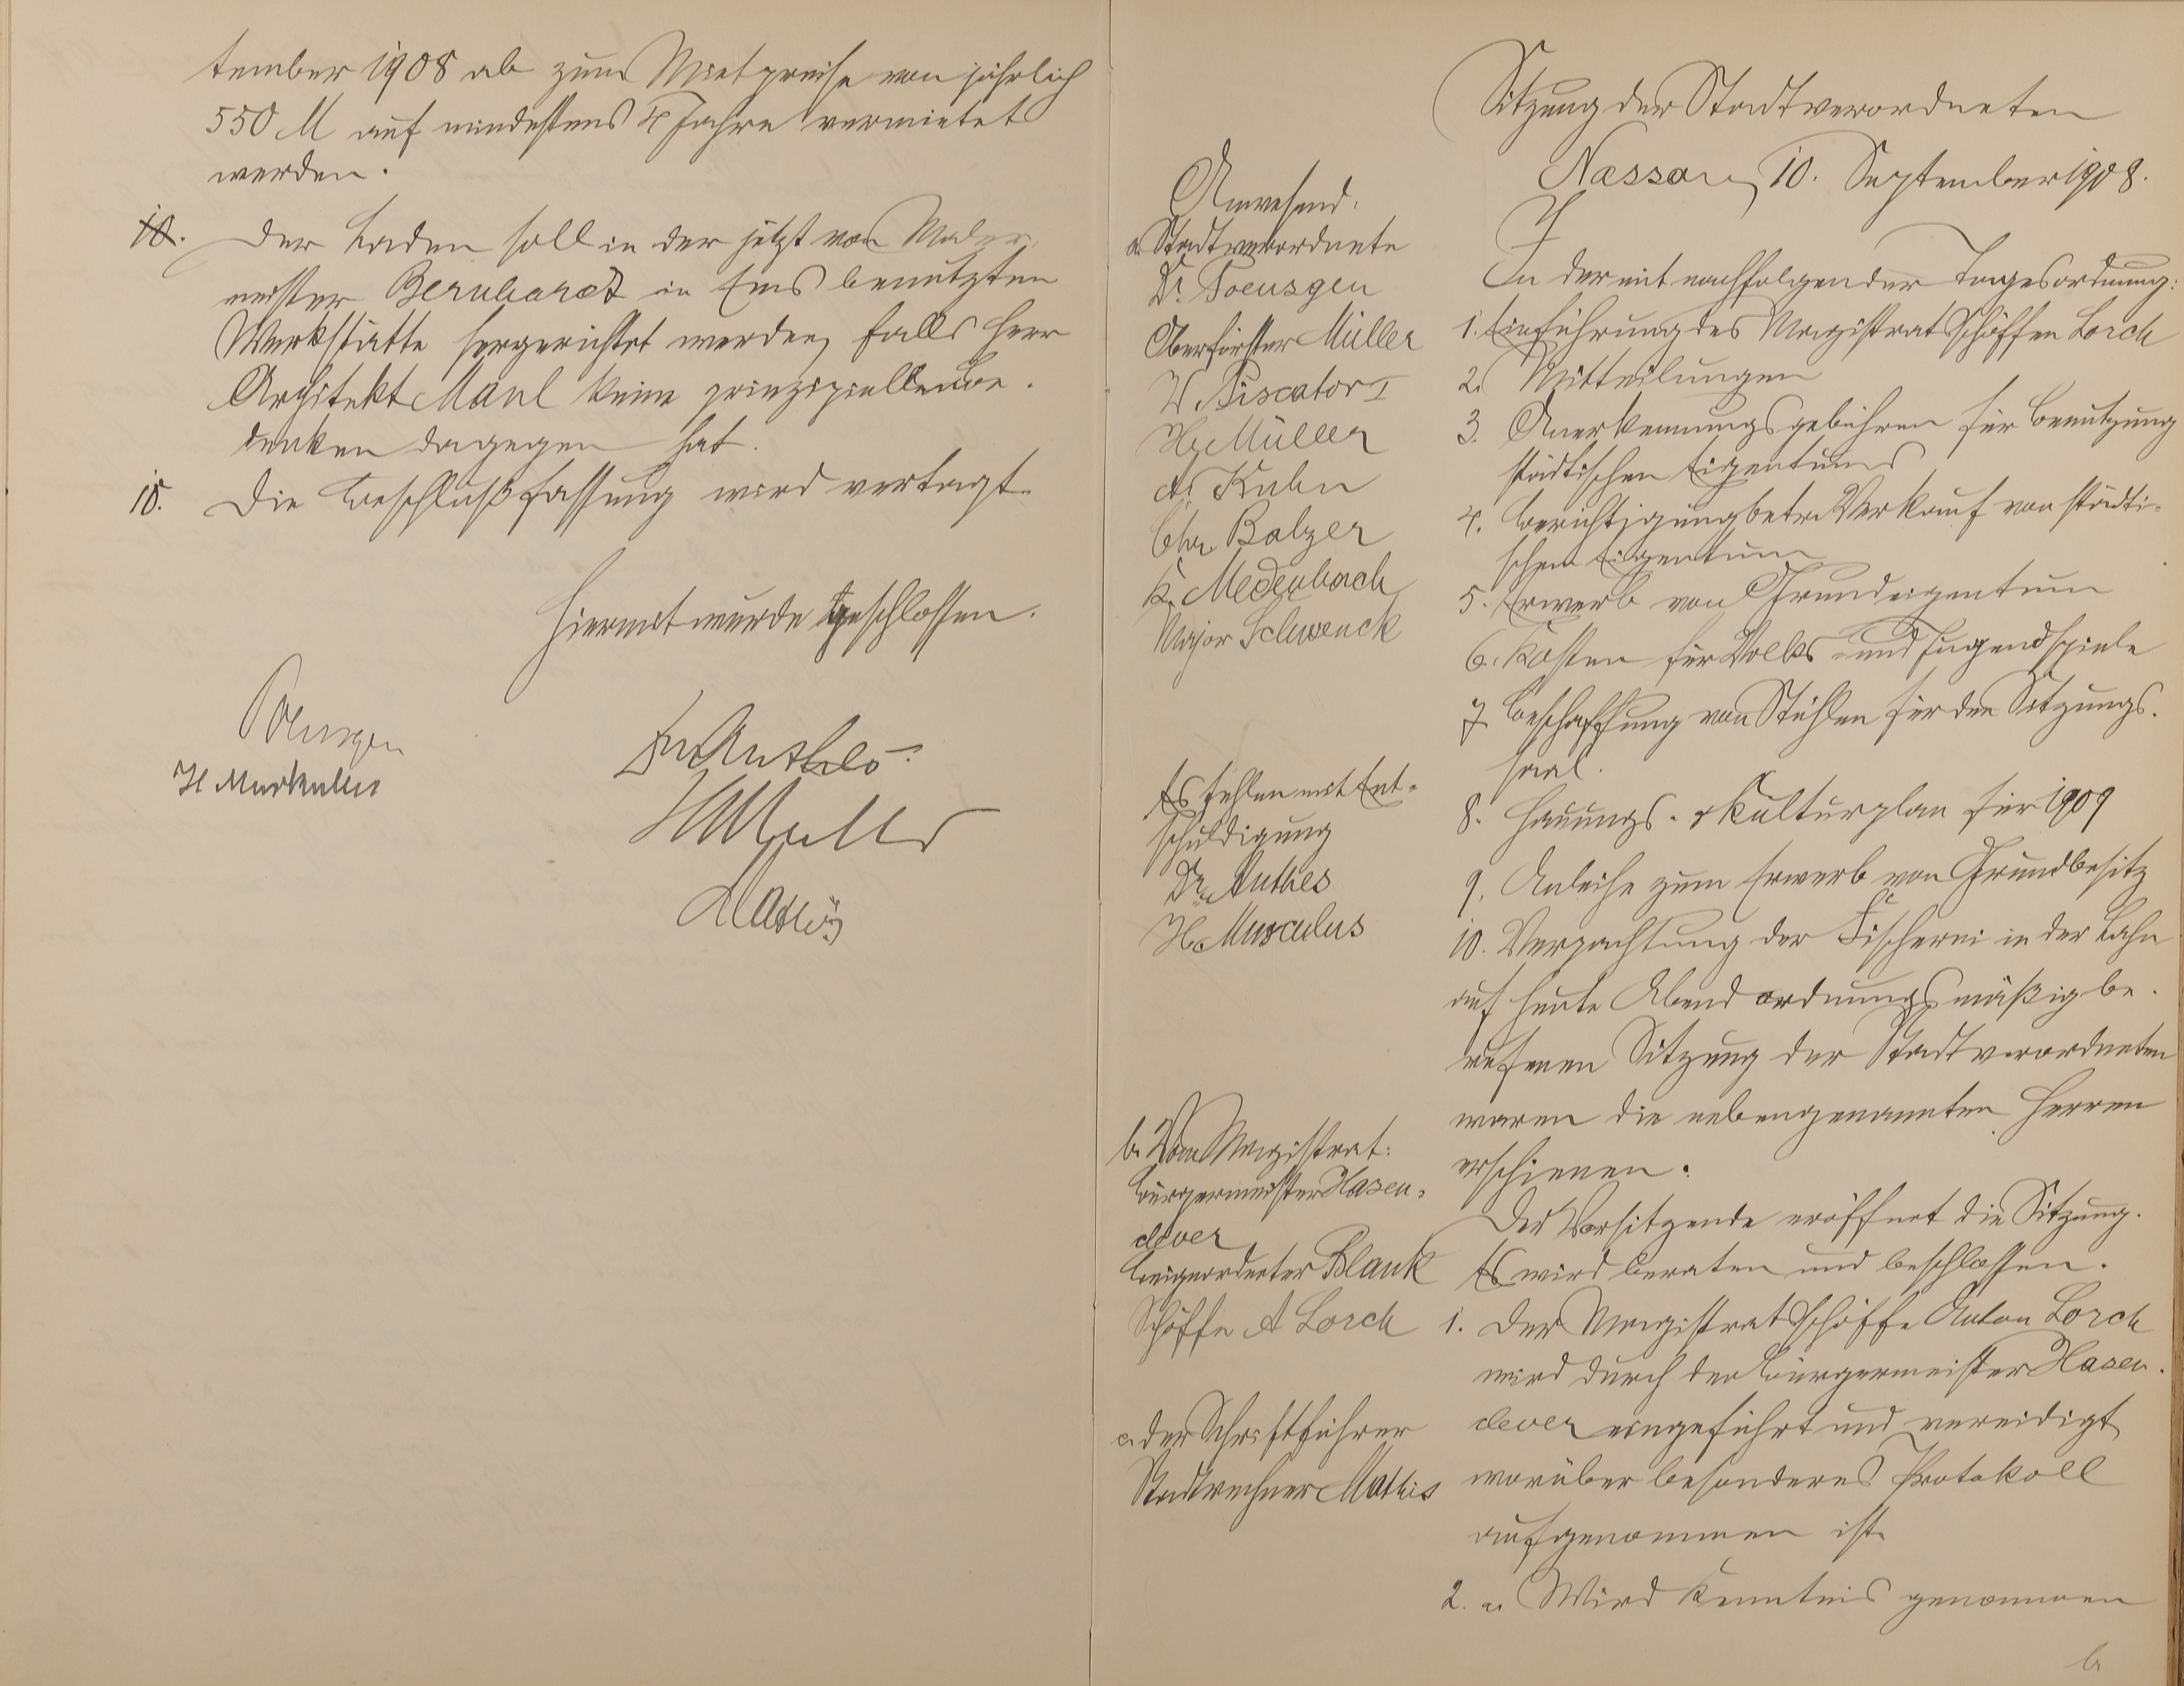 tember 1908 ab zum Mietpreise von jährlich
550 M auf mindestens 4 Jahre vermietet
werden.
10. Der Laden soll in der jetzt von Maler
meister Bernhardt in Ems benutzten
Werkstätte hergerichtet werden, falls Herr
Architekt Maul keine prinzipiellen Be-
denken dagegen hat.
15. Die Beschlußfassung wird vertagt.
Hiermit wurde geschlossen.
Poensgen
H Muskulus
Dr Anthes
H Müller
Mathis
Sitzung der Stadtverordneten
Nassau, 10. September 1908.
Anwesend.
a. Stadtverordnete
Dr. Poensgen
Oberförster Müller
W. Piscator I
H. Müller
A. Kuhn
Chr. Balzer
K. Medenbach
Major Schwenck
Es fehlen mit Ent-
schuldigung
Dr. Anthes
H. Musculus
b. Vom Magistrat:
Bürgermeister Hasen-
clever
Beigeordneter Blank
Schöffe A Lorch
c. der Schriftführer
Stadtrechner Mathis
In der mit nachfolgender Tagesordnung:
1. Einführung des Magistratsschöffen Lorch
2. Mitteilungen
3. Anerkennungsgebühren für Benutzung
städtischen Eigentums
4. Berichtigung betr. Verkauf von städti-
schem Eigentum
5. Erwerb von Grundeigentum
6. Kosten für Volks- und Jugendspiele
7. Beschaffung von Stühlen für den Sitzungs-
saal.
8. Hauungs- & Kulturplan für 1909
9. Anleihe zum Erwerb von Grundbesitz
10. Verpachtung der Fischerei in der Lahn
auf heute Abend ordnungsmäßig be-
rufenen Sitzung der Stadtverordneten
waren die nebengenannten Herren
erschienen.
Der Vorsitzende eröffnet die Sitzung.
Es wird beraten und beschlossen.
1. Der Magistratsschöffe Anton Lorch
wird durch den Bürgermeister Hasen-
clever eingeführt und vereidigt
worüber besonderes Protokoll
aufgenommen ist.
2. a. Wird Kenntnis genommen
b.